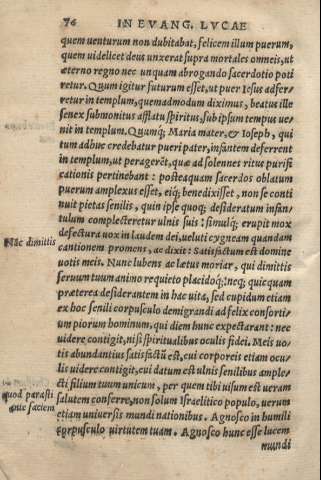 76 IN EVANG. LVCAE
quem uenturum non dubitabat, felicem illum puerum,
quem uidelicet deus unxerat supra mortales omneis, ut
æterno regno nec unquam abrogando sacerdotio poti
retur. Quum igitur futurum esset, ut puer Iesus adfer-
retur in templum, quemadmodum diximus, beatus ille
senex submonitus afflatu spiritus, sub ipsum tempus ue-
nit in templum. Quumq; Maria mater, & Ioseph, qui
tum adhuc credebatur pueri pater, infantem deferrent
in templum, ut peragerēt, quæ ad solennes ritus purifi
cationis pertinebant: posteaquam sacerdos oblatum
puerum amplexus esset, eiq; benedixisset, non se conti
nuit pietas senilis, quin ipse quoq; desideratum infan-
tulum complecteretur ulnis suis: simulq; erupit mox
defectura uox in laudem dei, ueluti cygneam quandam
Nūc dimittis
cantionem promens, ac dixit: Satisfactum est domine
uotis meis. Nunc lubens ac lætus moriar, qui dimittis
seruum tuum animo requieto placidoq; neq; quicquam
præterea desiderantem in hac uita, sed cupidum etiam
ex hoc senili corpusculo demigrandi ad felix consorti-
um piorum hominum, qui diem hunc expectarant: nec
uidere contigit, nisi spiritualibus oculis fidei. Meis uo-
tis abundantius satisfactū est, cui corporeis etiam ocu-
lis uidere contigit, cui datum est ulnis senilibus ample-
cti filium tuum unicum, per quem tibi uisum est ueram
quod parasti
salutem conferre, non solum Israelitico populo, uerum
ante faciem
etiam uniuersis mundi nationibus. Agnosco in humili
corpusculo uirtutem tuam. Agnosco hunc esse lucem
mundi